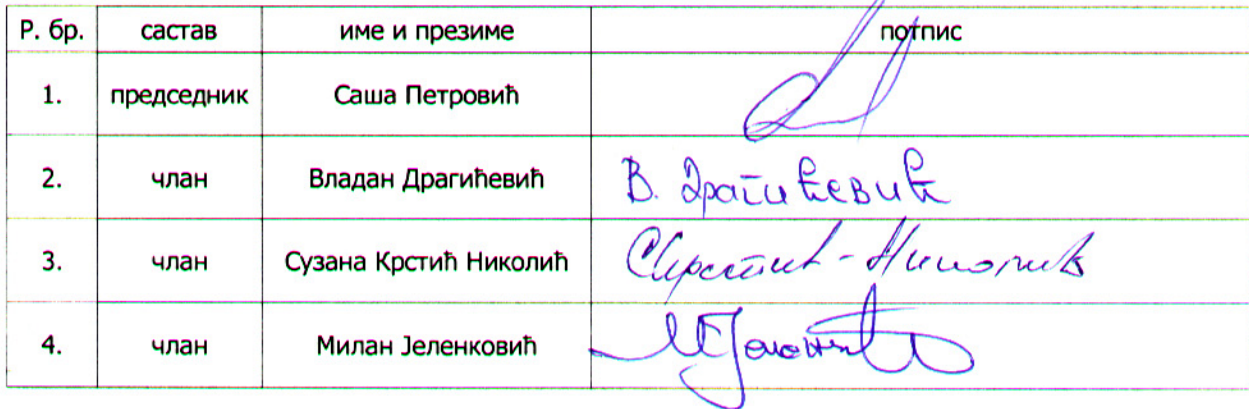 Р. бр. састав име и презиме потпис
1. председник Саша Петровић
2. члан Владан Драгићевић В. Драгићевић
3. члан Сузана Крстић Николић СКрстић-Николић
4. члан Милан Јеленковић